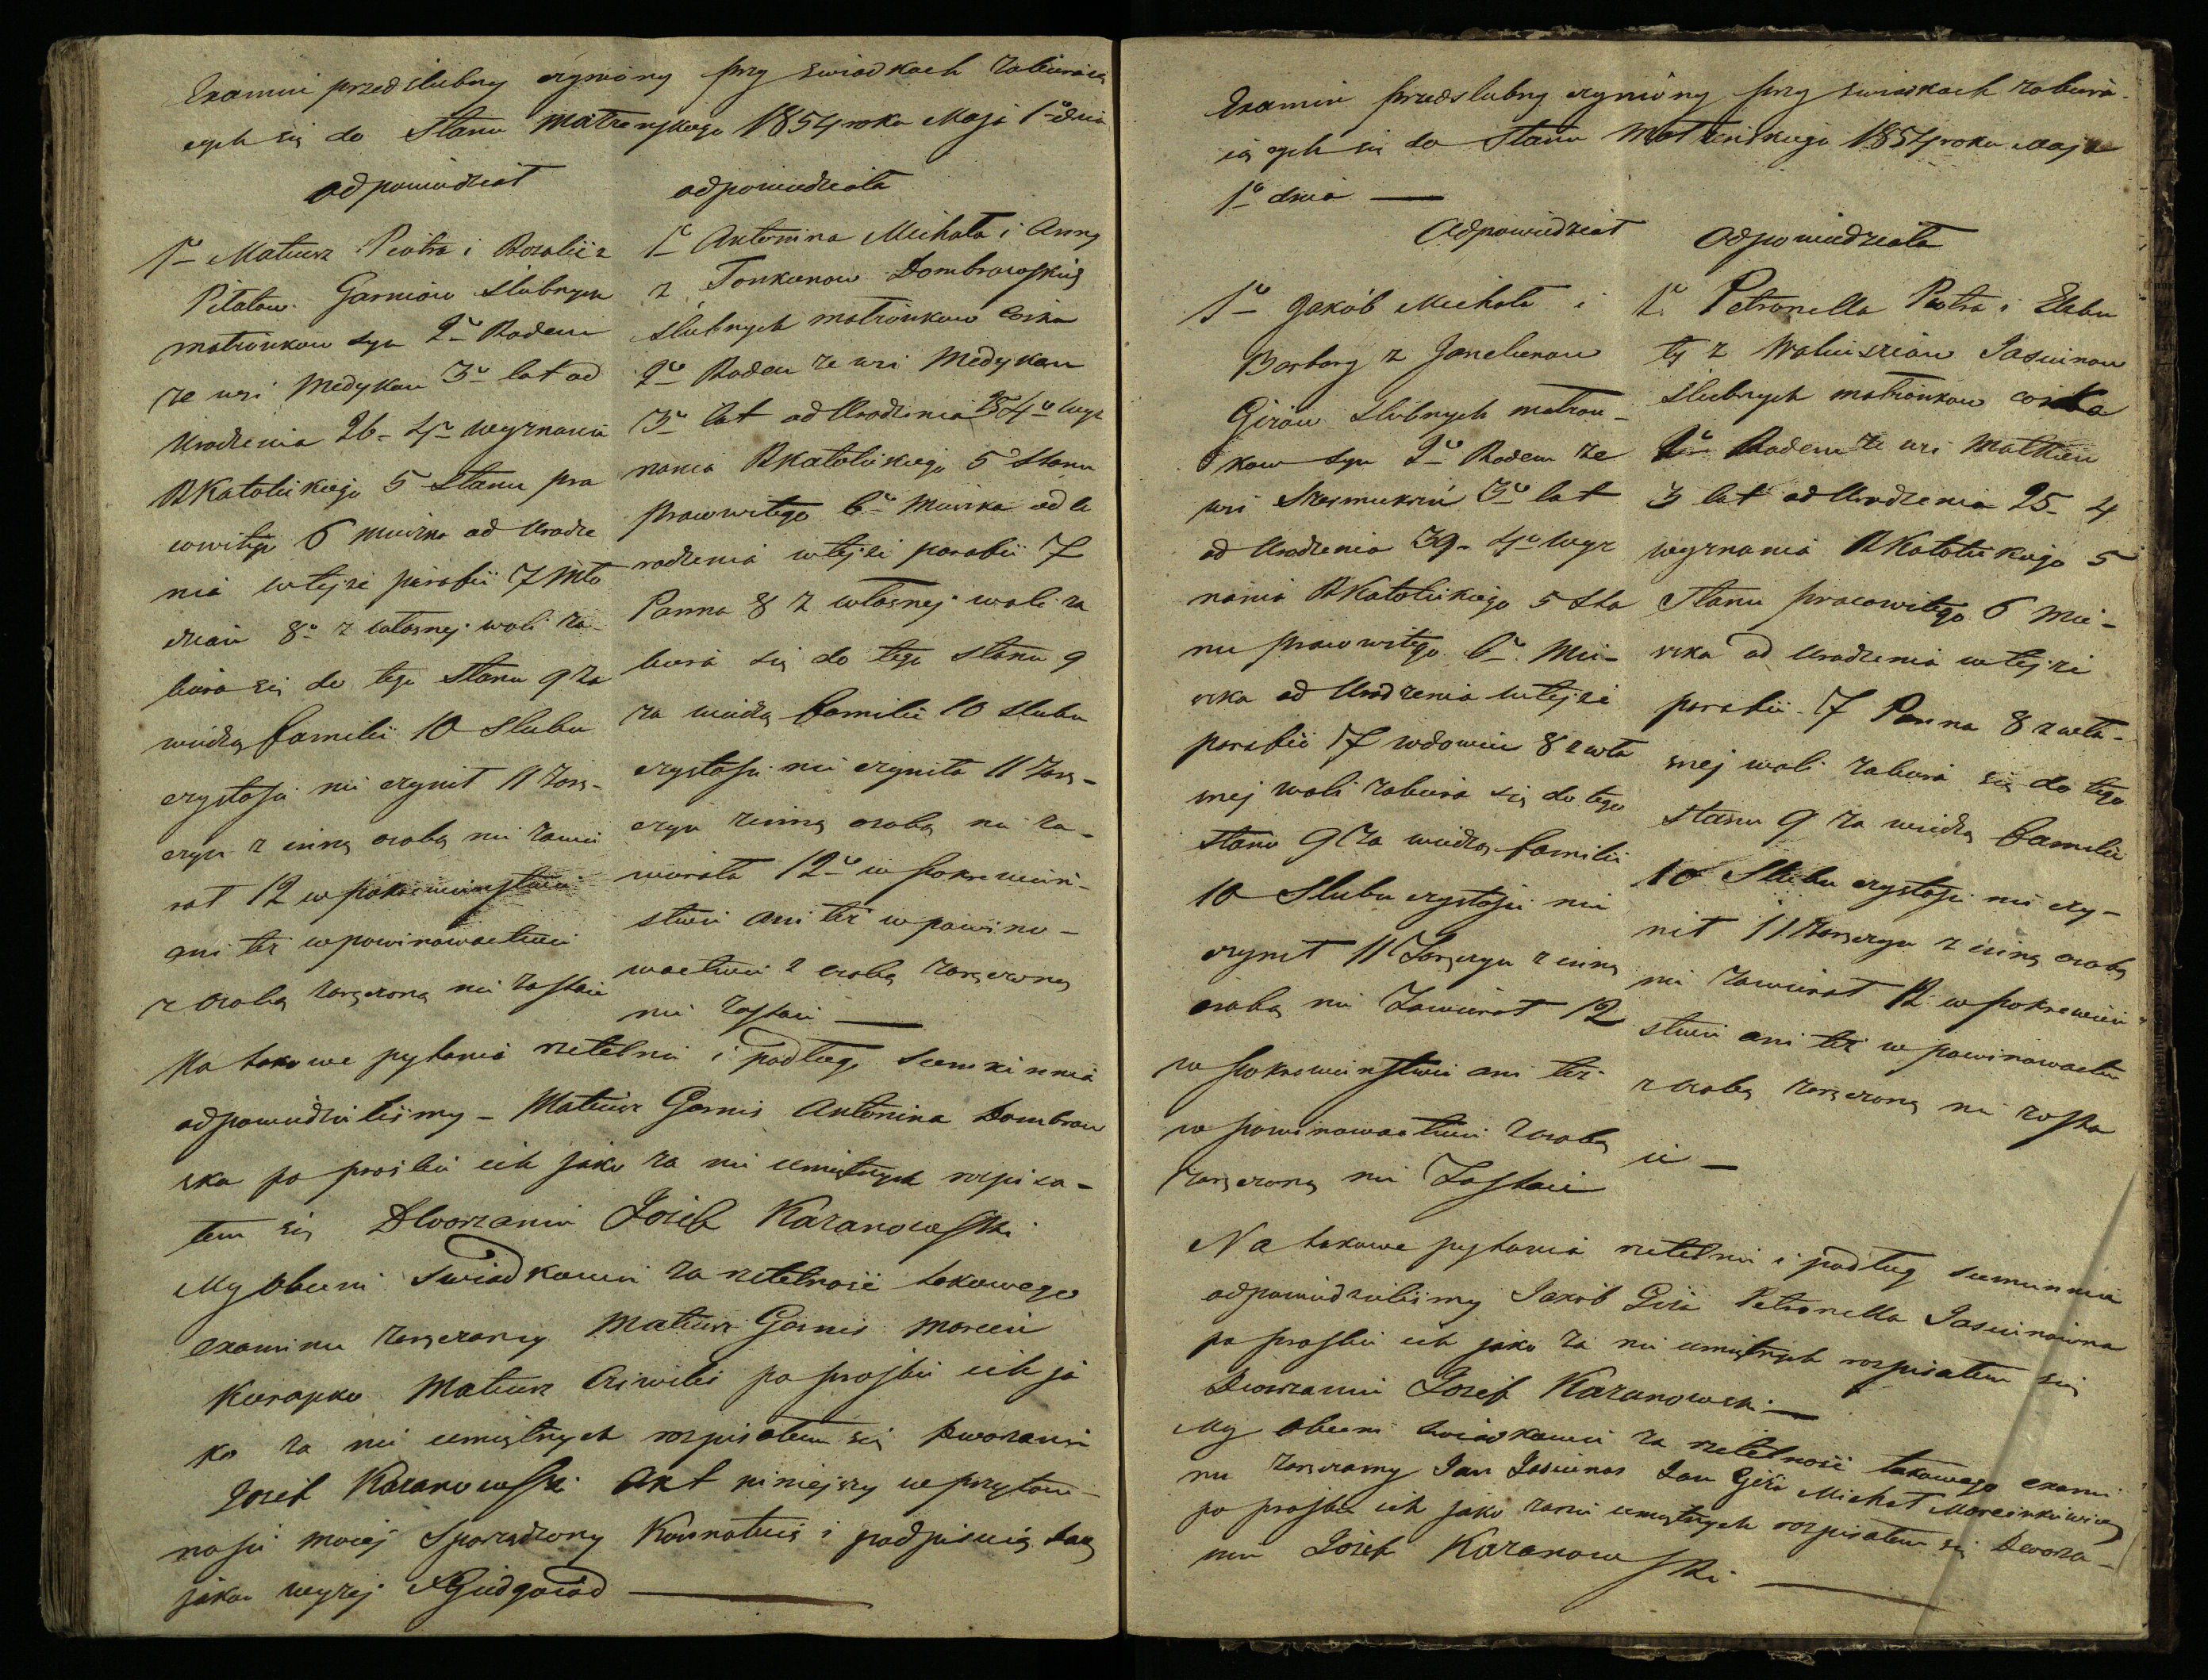 Examin przedślubny czyniony przy swiadkach zabieraią
cych się do Stanu Małżeńskiego 1854 roku Maja 1º dnia
odpowiedział
1º Mateusz Piotra i Rozalii z
Pilatow Garniów ślubnych
małżonkow syn 2º Rodem
ze wsi Medykan 3º lat od
Urodzenia 26 - 4º wyznania
RKatolickiego 5 Stanu pra
cowitego 6 mieszka od Urodze
nia w tejże parafii 7 Mło
dzian 8º z własnej woli za-
biera się do tego Stanu 9 za
wiedzą familii 10 Slubu
czystości nie czynił 11 Zarę-
czyn z inną osobą nie zawie
rał 12 w pokrewieństwie
ani też w powinowactwie
z osobą zaręczoną nie zostaie
odpowiedziała
1º Antonina Michała i Anny
z Tonkunow Dombrowskich
ślubnych małżonkow corka
2º Rodem ze wsi Medykan
3º lat od Urodzenia 25 4º wyz
nania RKatolickiego 5 Stanu
pracowitego 6º Mieszka od u
rodzenia w tejże parafii 7
Panna 8 z własnej woli za
biera się do tego stanu 9
za wiedzą familii 10 slubu
czystości nie czyniła 11 zarę-
czyn z inną osobą nie za-
wierała 12º w pokrewień-
stwie ani też w powino-
wactwie z osobą zaręczoną
nie zostaie
Na takowe pytania rzetelnie i podług sumienia
odpowiedzieliśmy - Mateusz Garnis Antonina Dombrow
ska po prośbie ich jako za nie umiętnych rozpisa-
łem się Dworzanin Jozef Kazanowski
My obecni Swiadkowie za rzetelność takowego
examinu zaręczamy Mateusz Garnis Marcin
Kurapko Mateusz po prośbie ich ja
ko za nie umiętnych rozpisałem się Dworzanin
Jozef Kazanowski Akt niniejszy w przytom-
ności mojej sporządzony konnotuię i podpisuię datą
jako wyżej
Examin przedslubny czyniony przy swiadkach zabiera-
ią cych się do Stanu Małżeńskiego 1854 roku Maja
1º dnia
Odpowiedział
1º Jakób Michała i
Barbary z Janelunow
Giżow slubnych małżon-
kow syn 2º Rodem ze
wsi 3º lat
od Urodzenia 39 - 4º wyz
nania RKatolickiego 5 Sta
nu pracowitego 6º Mie-
szka od Urodzenia w tejże
parafii 7 wdowiec 8 z wła
snej woli zabiera się do tego
stanu 9 za wiedzą familii
10 Slubu czystości nie
czynił 11 Zaręczyn z inną
osobą nie Zawierał 12
w pokrewieństwie ani też
w powinowactwie z osobą
zaręczoną nie Zostaie
Odpowiedziała
1º Petronella Piotra i Elzbie
ty z Jasiunow
ślubnych małżonkow corka
2º Rodem ze wsi
3 lat od Urodzenia 25 - 4
wyznania RKatolickiego 5
Stanu pracowitego 6 Mie-
szka od Urodzenia w tejże
parafii 7 Panna 8 z wła-
snej woli zabiera się do tego
stanu 9 za wiedzą familii
10 Slubu czystości nie czy-
nił 11 Zaręczyn z inną osobą
nie zawierał 12 w pokrewień
stwie ani też w powinowactw
z osobą zaręczoną nie zosta
ie
Na takowe pytania rzetelnie i podług sumienia
odpowiedzieliśmy Jakób Giża Petronella Jasiunowna
po prośbie ich jako za nie umiętnych rozpisałem się
Dworzanin Jozef Kazanowski
My obecni swiadkowie za rzetelność takowego exami
nu zaręczamy Jan Jasiunas Jan Giża Michał Marcinkiewicz
po prośbie ich jako zanie umiętnych rozpisałem się Dworza-
nin Jozef Kazanowski